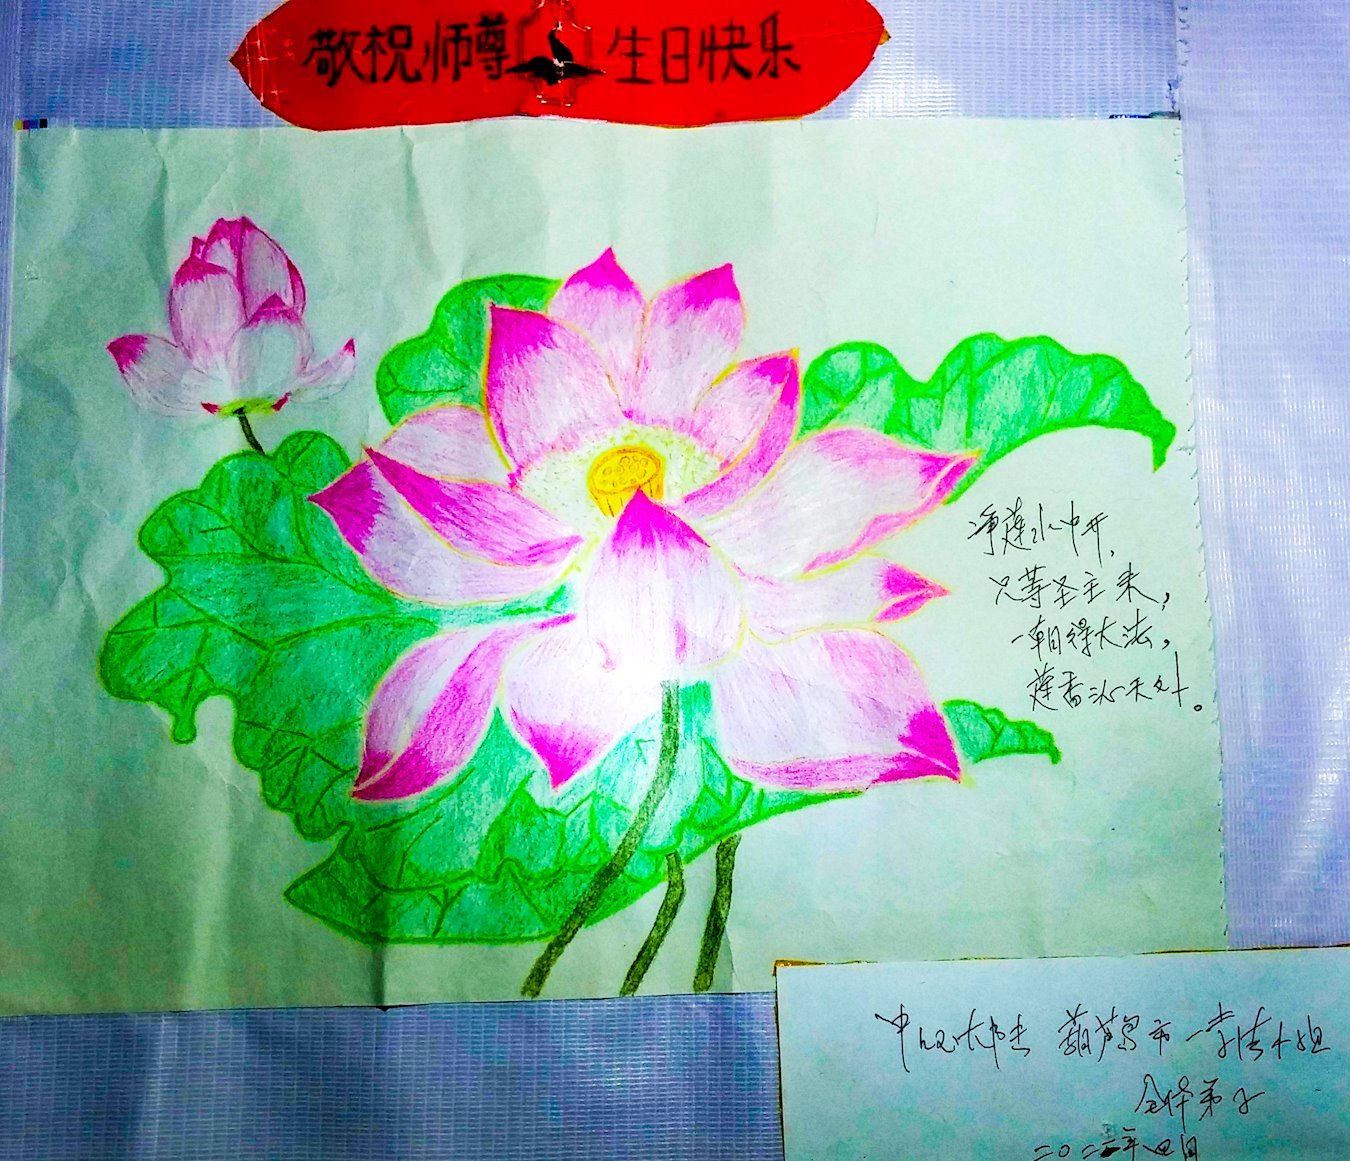 敬祝师尊 生日快乐
净莲水中开，
只等圣主来，
一朝得大法，
莲香沁天外。
中国大陆 葫芦岛市一李洪小组
全体弟子
二〇二三年四月